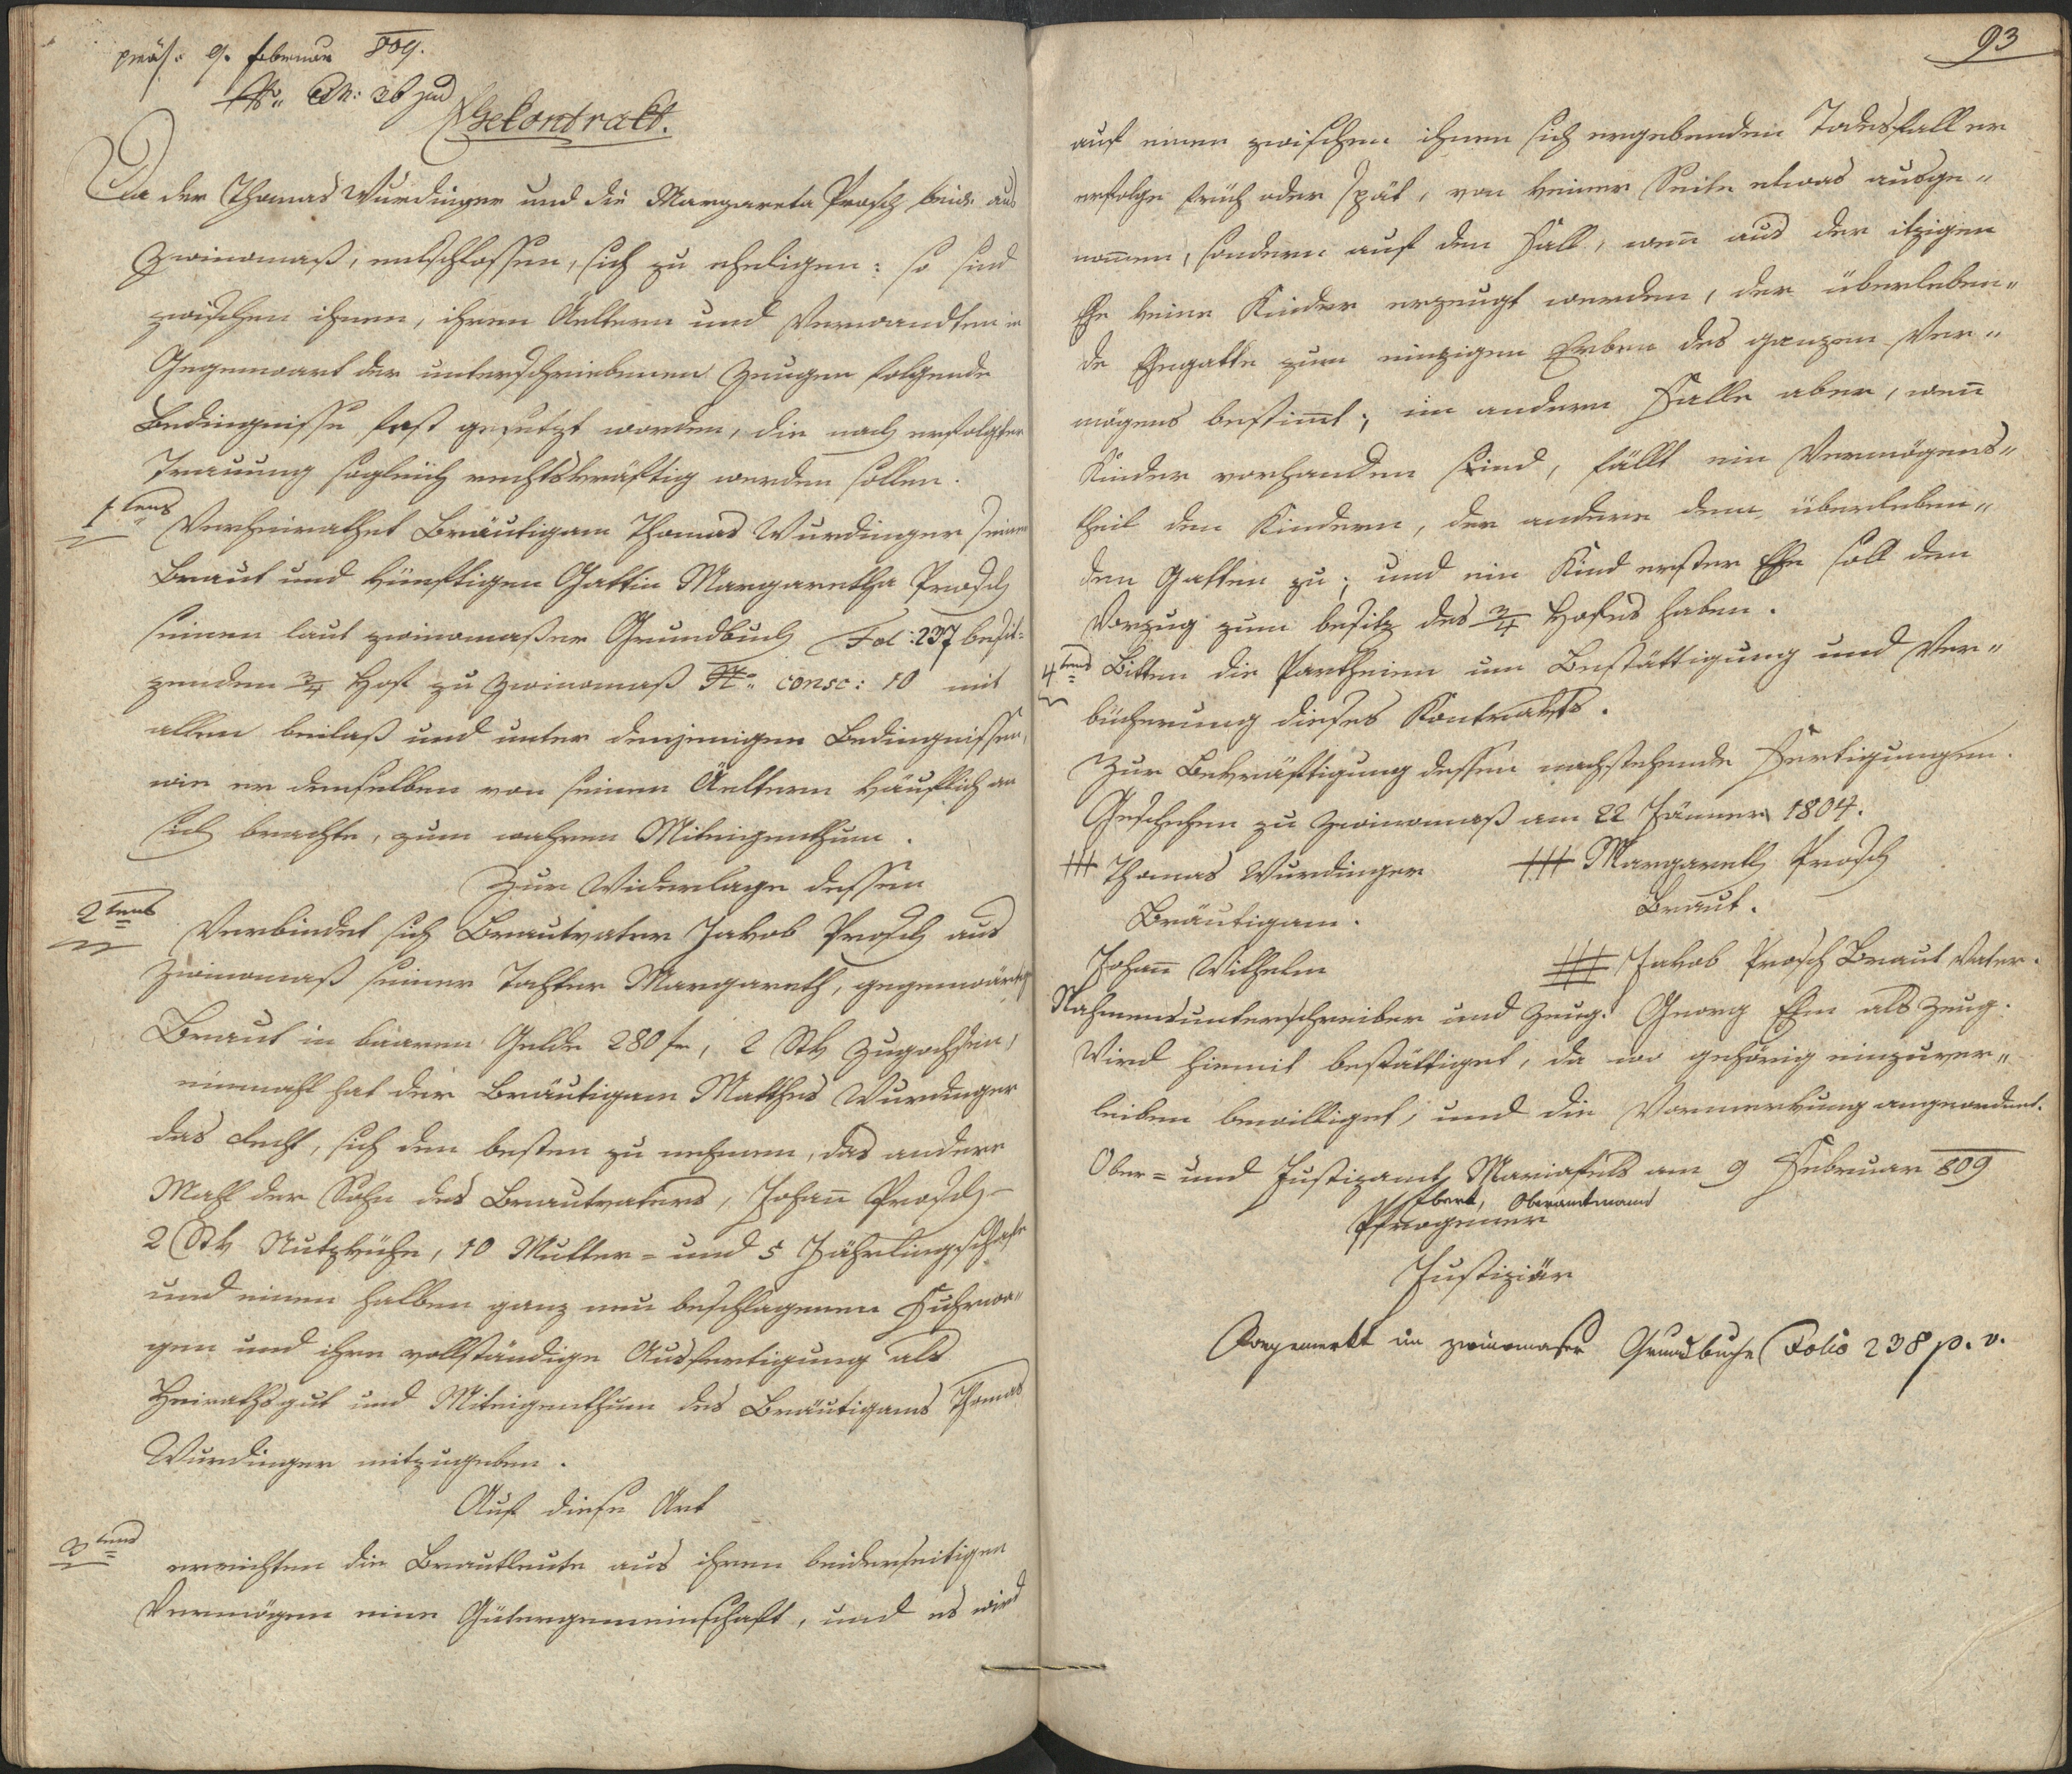 präs: 9. februar 809.
No: Ex: 36 jud
Ehekontrakt.
Da der Thomas Wurdinger und die Margareta Prosch beide aus
Zwinomaß, entschlossen, sich zu eheligen: so sind
zwischen ihnen, ihren Aeltern und Verwandten in
Gegenwart der unterschriebenen Zeugen folgende
Bedingnisse fest gesetzt worden, die nach erfolgter
Trauung sogleich rechtskräftig werden sollen.
1tens Verheirathet Bräutigam Thomas Wurdinger seiner
Braut und künftigen Gattin Margaretha Prosch
seinen laut zwinomaßer Grundbuch Fol: 237 besit-
zenden 3/4 Hof zu Zwinomaß No: consc: 10 mit
allem beilaß und unter denjenigen Bedingnissen,
wie er denselben von seinen Äeltern käuflich an
sich brachte, zum wahren Miteigenthum.
Zur Widerlage dessen
2tens Verbindet sich Brautvater Jakob Prosch aus
Zwinomaß seiner Tochter Margareth, gegenwärtige
Braut in baaren Gelde 280 fr, 2 Stk Zugochsen,
einmahl hat der Bräutigam Matthes Wurdinger
das Recht, sich den besten zu nehmen, das andere
Mahl der Sohn des Brautvaters, Johann Prosch -
2 Stk Nutzkühe, 10 Mutter- und 5 Jährlingschafe
und einen halben ganz neu beschlagenen Fuhrwa"
gen und ihre vollständige Ausfertigung als
Heirathsgut und Miteigenthum des Bräutigams Thomas
Wurdinger mitzugeben.
Auf diese Art
3tens errichten die Brautleute aus ihren beiderseitigen
Vermögen eine Gütergemeinschaft, und es wird
93
auf einen zwischen ihnen sich ergebenden Todesfall er
erfolge früh oder spät, von keiner Seite etwas ausge"
nom̄en, sondern auf den Fall, wen̄ aus der itzigen
Ehe keine Kinder erzeugt werden, der überleben"
de Ehegatte zum einzigen Erben des ganzen Ver"
mögens bestim̄t; im andern Falle aber, wen̄
Kinder vorhanden sind, fällt ein Vermögens"
theil den Kindern, der andere dem überleben"
den Gatten zu; und ein Kind erster Ehe soll den
Vorzug zum besitz des 3/4 Hofes haben.
4tens Bitten die Partheien um Bestättigung und Ver"
bücherung dieses Kontrakts.
Zur Bekräftigung dessen nachstehende Fertigungen.
Geschehen zu Zwinomaß am 22 Jänner 1804.
+++ Thomas Wurdinger +++ Margareth Prosch
Bräutigam. Braut.
Johan̄ Wilhelm +++ Jakob Prosch Braut Vater.
Nahmensunterschreiber und Zeug. Georg Ehm als Zeug.
Wird hiemit bestättiget, da wo gehörig einzuver"
leiben bewilliget, und die Vormerkung angeordnet.
Ober- und Justizamt Mariafels am 9 Februar 809
Ebert, Oberamtmann
Pfrogner
Justiziär
Vorgemerkt im zwinomaßer Grundbuche Folio 238 p. v.